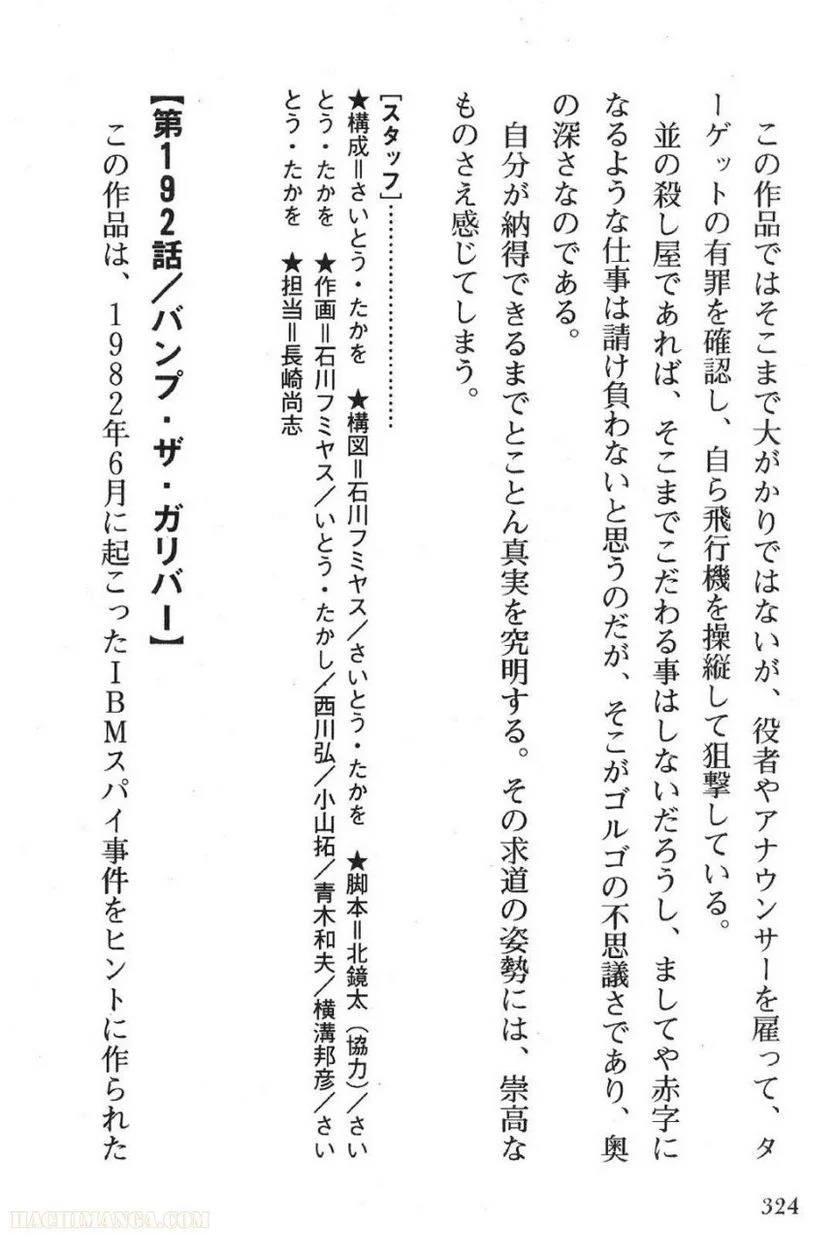 この作品ではそこまで大がかりではないが、役者やアナウンサーを雇って、タ
ーゲットの有罪を確認し、自ら飛行機を操縦して狙撃している。
並の殺し屋であれば、そこまでこだわる事はしないだろうし、ましてや赤字に
なるような仕事は請け負わないと思うのだが、そこがゴルゴの不思議さであり、奥
の深さなのである。
自分が納得できるまでとことん真実を究明する。その求道の姿勢には、崇高な
ものさえ感じてしまう。
［スタッフ］…………………………
★構成＝さいとう・たかを　★構図＝石川フミヤス／さいとう・たかを　★脚本＝北鏡太（協力）／さい
とう・たかを　★作画＝石川フミヤス／いとう・たかし／西川弘／小山拓／青木和夫／横溝邦彦／さい
とう・たかを　★担当＝長崎尚志
【第192話／バンプ・ザ・ガリバー】
この作品は、1982年6月に起こったIBMスパイ事件をヒントに作られた
324
HACHIMANGA.COM